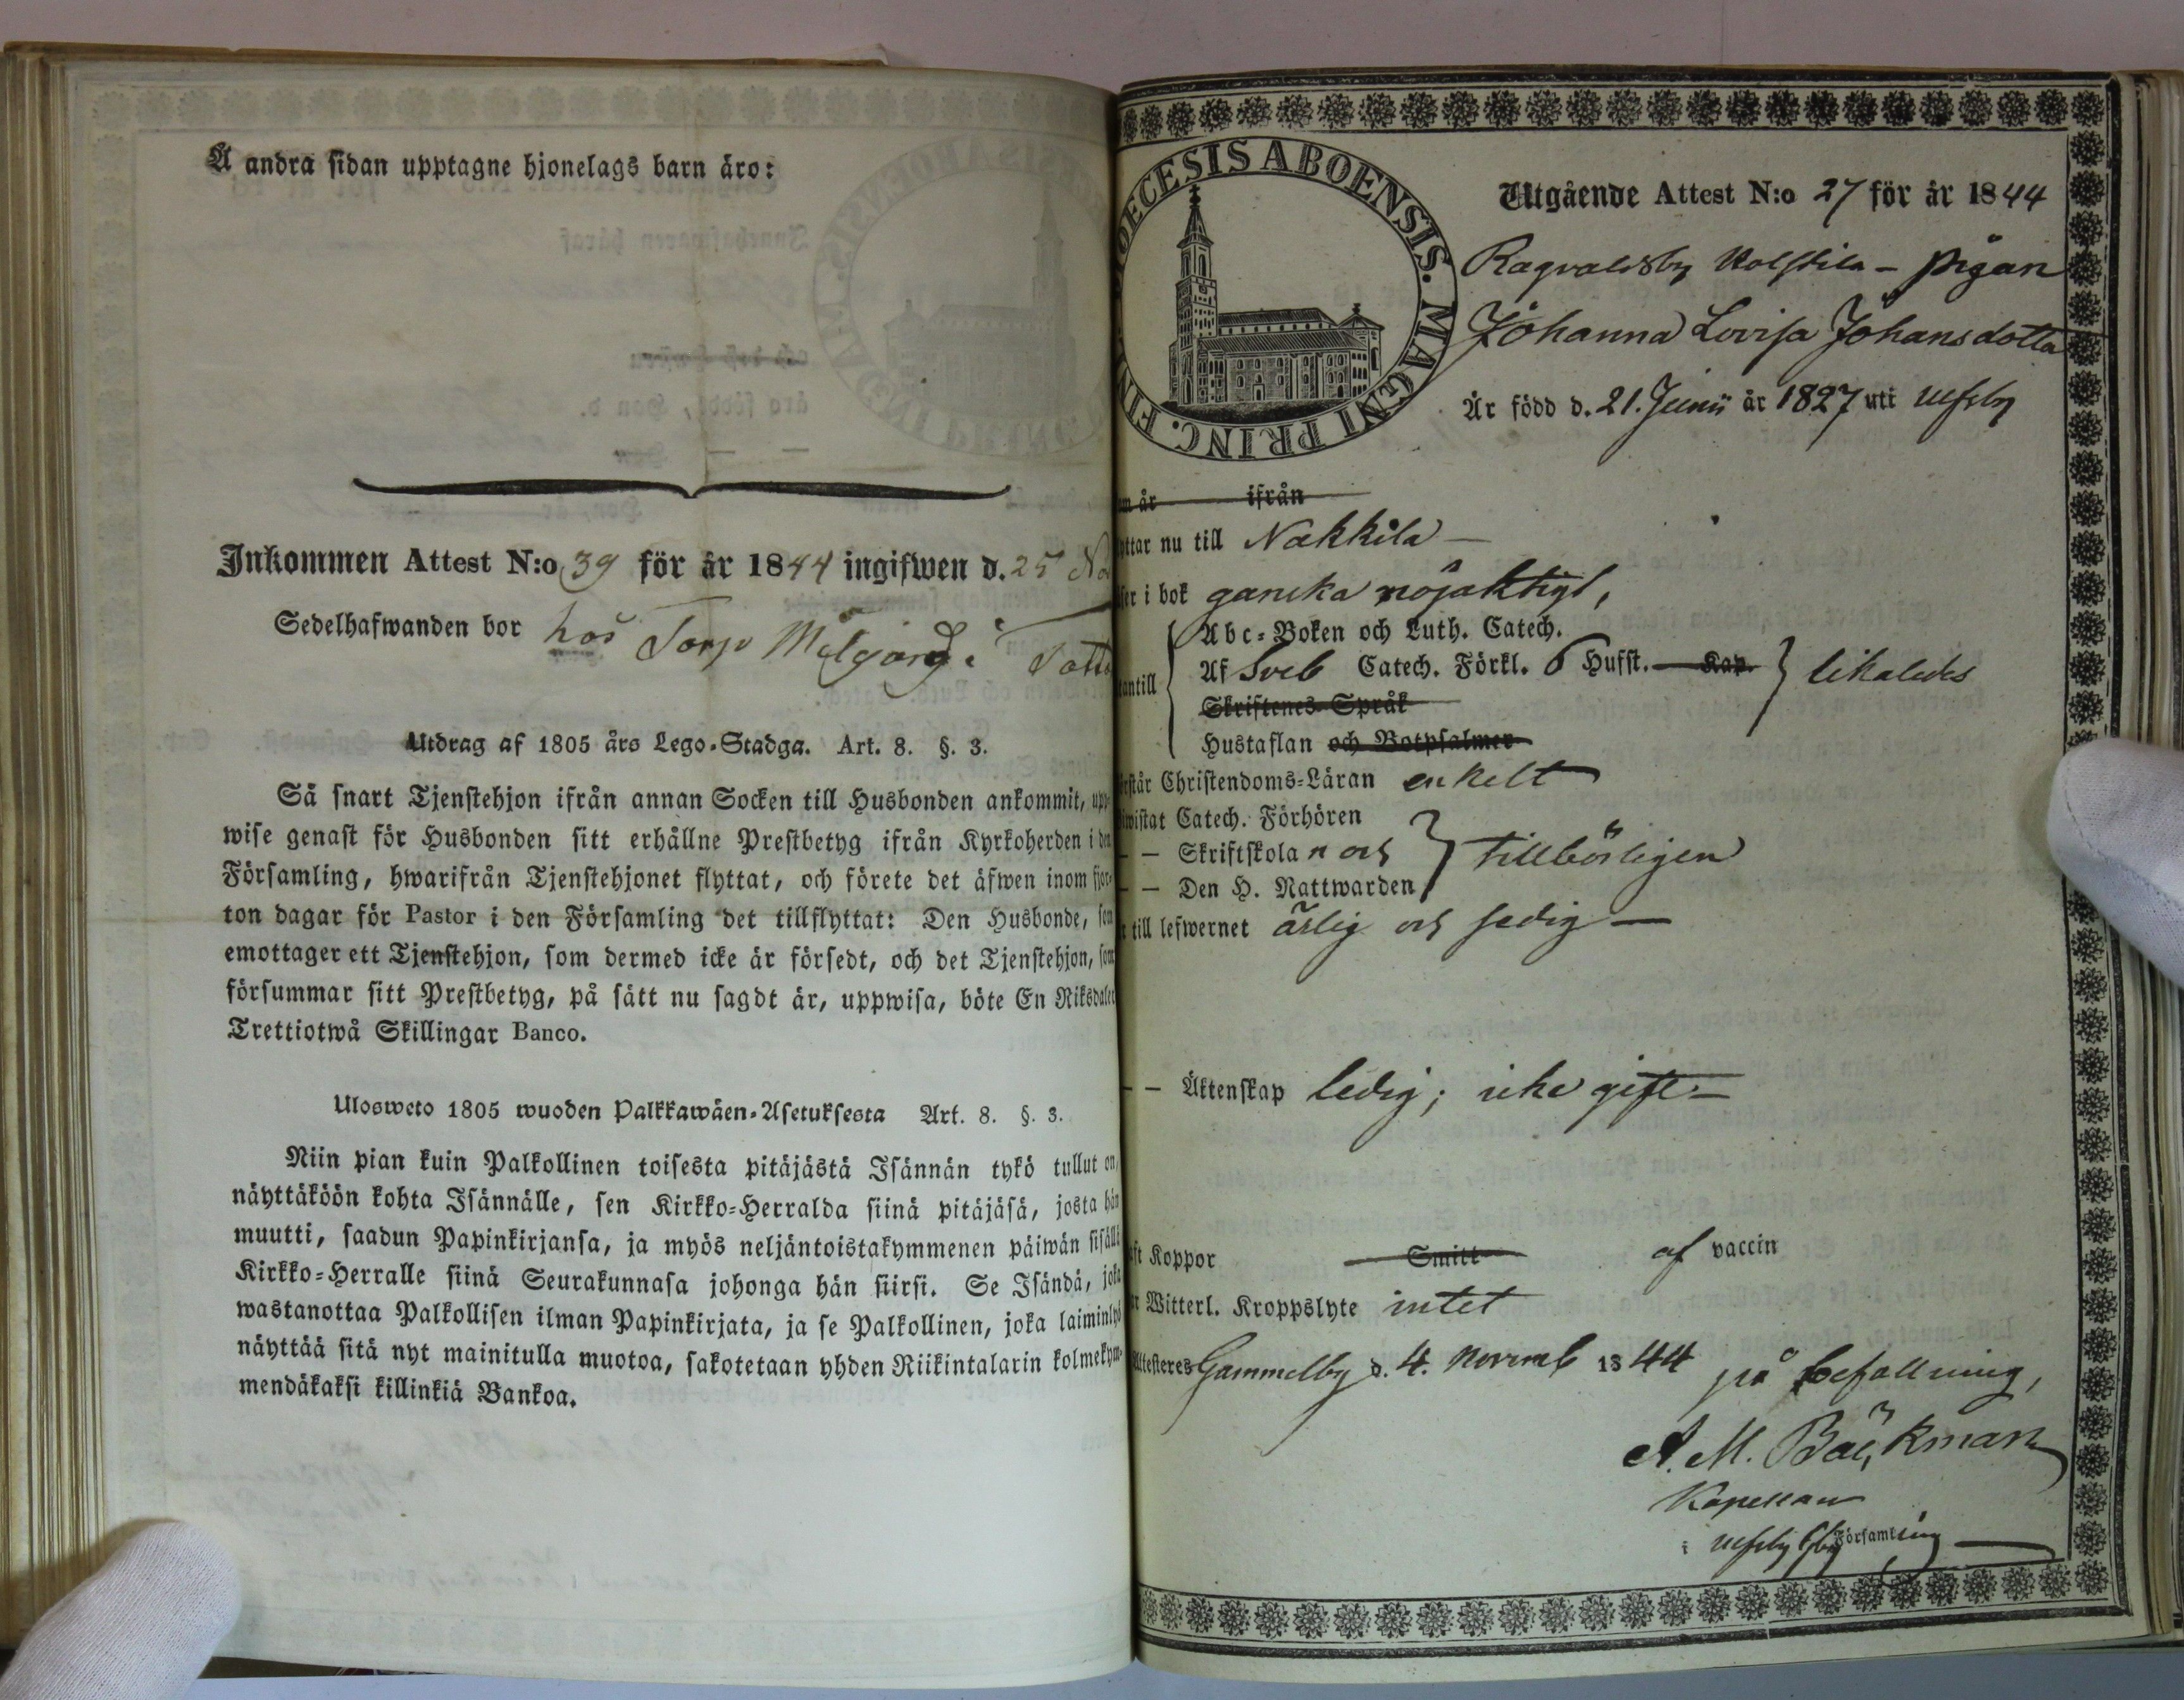 Å andra sidan upptagne hjonelags barn äro:
Inkommen Attest N:o 39 för år 1844 ingifwen d. 25 No
Sedelhafwanden bor hos Torp
Utdrag af 1805 års Lego-Stadga. Art. 8. §. 3.
Så snart Tjenstehjon ifrån annan Socken till Husbonden ankommit, upp-
wise genast för Husbonden sitt erhållne Prestbetyg ifrån Kyrkoherden i den
Församling, hwarifrån Tjenstehjonet flyttat, och förete det äfwen inom fjor-
ton dagar för Pastor i den Församling det tillflyttat: Den Husbonde, som
emottager ett Tjenstehjon, som dermed icke är försedt, och det Tjenstehjon, som
försummar sitt Prestbetyg, på sätt nu sagdt är, uppwisa, böte En Riksdaler
Trettiotwå Skillingar Banco.
Ulosweto 1805 wuoden Palkkawäen-Asetuksesta Art. 8. §. 3.
Niin pian kuin Palkollinen toisesta pitäjästä Isännän tykö tullut on,
näyttäköön kohta Isännälle, sen Kirkko-Herralda siinä pitäjäsä, josta hän
muutti, saadun Papinkirjansa, ja myös neljäntoistakymmenen päiwän sisällä
Kirkko-Herralle siinä Seurakunnasa johonga hän siirsi. Se Isändä, joka
wastanottaa Palkollisen ilman Papinkirjata, ja se Palkollinen, joka laiminlyö
näyttää sitä nyt mainitulla muotoa, sakotetaan yhden Riikintalarin kolmekym-
mendäkaksi killinkiä Bankoa.
DIOECESIS ABOENSIS. MAGNI PRINC. FIN
Utgående Attest N:o 27 för år 1844
Ragvaldsby Kolstila - pigan
Johanna Lovisa Johansdotter
Är född d. 21. Junii år 1827 uti Ulfsby
om år ifrån
yttar nu till Nakkila
ser i bok ganska nöjaktigt,
Abc-Boken och Luth. Catech.
Af Sveb Catech. Förkl. 6 Hufst. Kap. likaledes
tantill
Skriftenes Språk
Hustaflan och Botpsalmer
rstår Christendoms-Läran enkelt
iwistat Catech. Förhören
— — Skriftskolan och tillbörligen
— — Den H. Nattwarden
r till lefwernet ärlig och sedig
— — Äktenskap ledig; icke gift
ft Koppor Smitt af vaccin
r Witterl. Kroppslyte intet
Attesteres Gammelby d. 4. Novemb 1844 på befallning,
A. M. Bäckman
Kapellan
i Ulfsby Församling